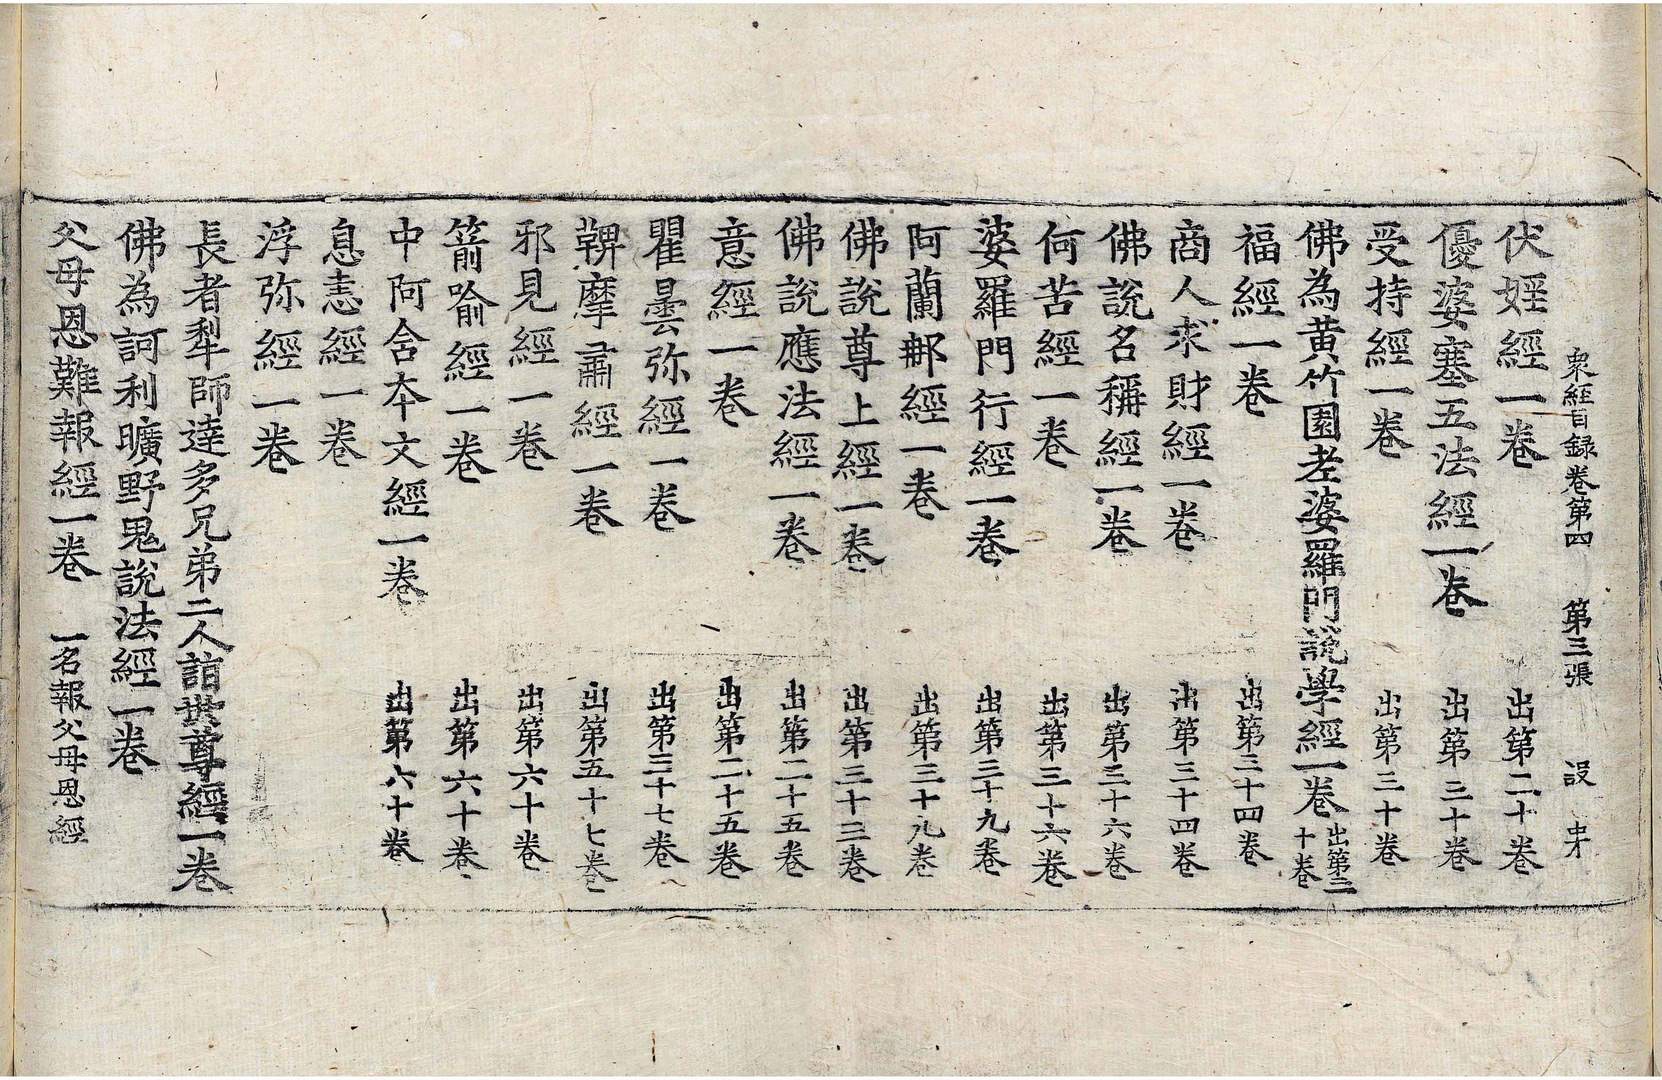 衆経目録卷第四 第三張 設 才
伏婬經一卷 出第二十卷
優婆塞五法經一卷 出第三十卷
受持經一卷 出第三十卷
佛為黄竹園老婆羅門說學經一卷 出第三十卷
福經一卷 出第三十四卷
商人求財經一卷 出第三十四卷
佛說名稱經一卷 出第三十六卷
何苦經一卷 出第三十六卷
婆羅門行經一卷 出第三十九卷
阿蘭𨚗經一卷 出第三十九卷
佛說尊上經一卷 出第三十三卷
佛說應法經一卷 出第二十五卷
意經一卷 出第二十五卷
瞿曇弥經一卷 出第三十七卷
鞞摩肅經一卷 出第五十七卷
邪見經一卷 出第六十卷
箭喻經一卷 出第六十卷
中阿含夲文經一卷 出第六十卷
息恚經一卷
浮弥經一卷
長者犁師達多兄弟二人詣世尊經一卷
佛為訶利曠野鬼說法經一卷
父母恩難報經一卷 一名報父母恩經